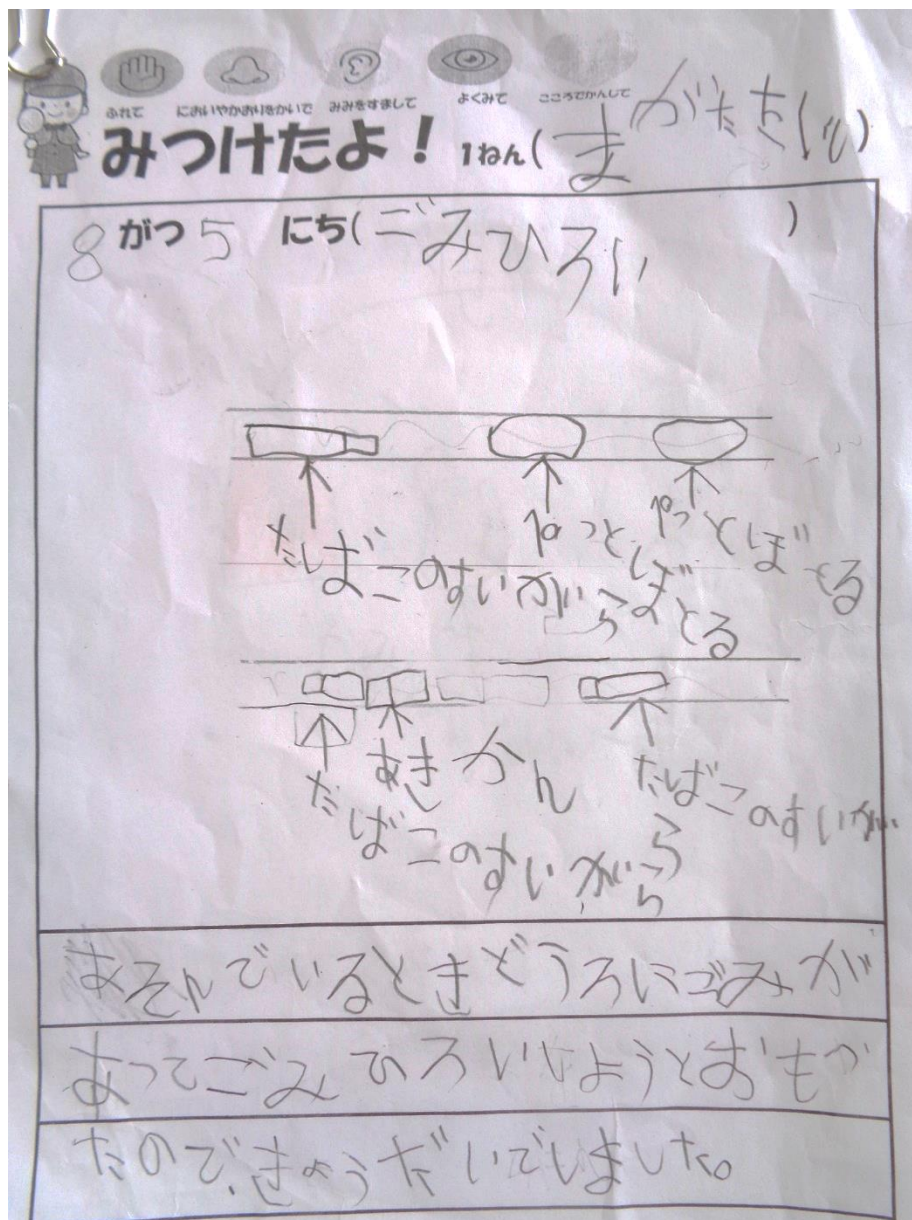 ふれて においやかおりをかいで みみをすまして よくみて こころでかんじて
みつけたよ! 1ねん( )
8がつ5にち(ごみひろい)
たばこのすいがら
ぺっとぼとる
ぺっとぼとる
たばこのすいがら
あきかん
たばこのすいがら
あそんでいるときどうろにごみが
あってごみひろいしようとおもっ
たので、きょうだいでしました。